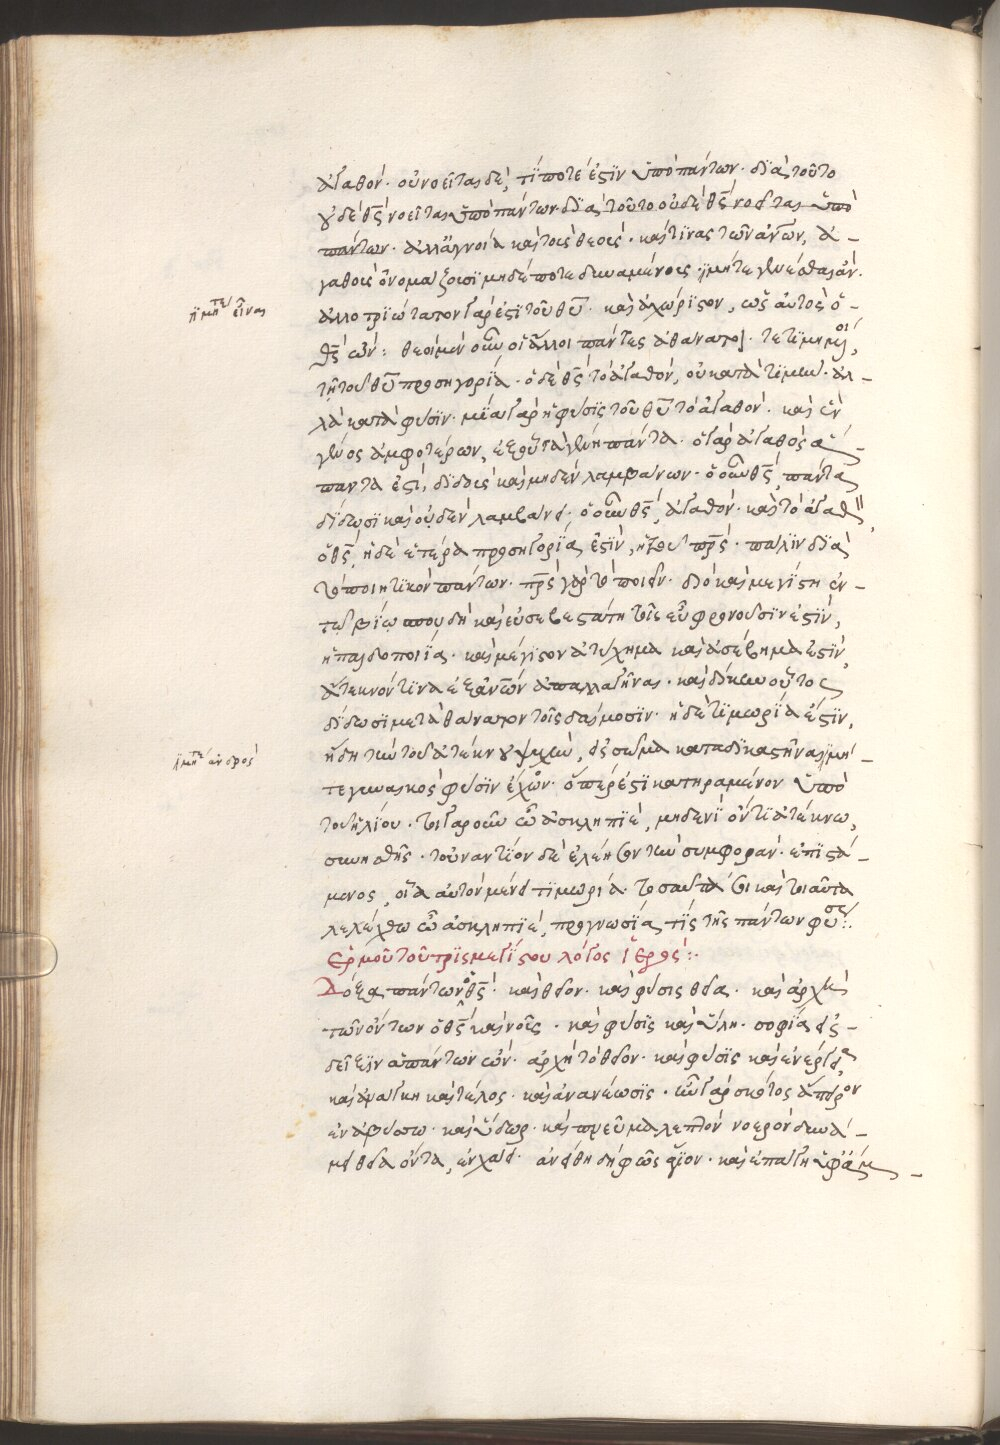 ἀγαθόν· οὐ νοεῖται δὲ, τί ποτέ ἐστιν ὑπὸ πάντων· διὰ τοῦτο
οὐδὲ θς νοεῖται ὑπὸ πάντων· διὰ τοῦτο οὐδὲ θς νοεῖται ὑπὸ
πάντων· ἀλλ' ἀγνοία καὶ τοὺς θεοὺς· καὶ τινας τῶν ἀνων, ἀ-
γαθοὺς ὀνομάζουσι μηδέποτε δυναμένους· ἢ μήτε γενέσθαι ἀν·
ἢ μήτε εἶναι
ἀλλοτριώτατον γάρ ἐστι τοῦ θυ· καὶ ἀχώριστον, ὡς αὐτὸς ὁ
θς ὤν: θεοὶ μὲν οὖν οἱ ἄλλοι πάντες ἀθάνατοι· τετιμημένοι,
τῇ τοῦ θυ προσηγορία· ὁ δὲ θς τὸ ἀγαθὸν, οὐ κατὰ τιμὴν· ἀλ-
λὰ κατὰ φύσιν· μία γὰρ ἡ φύσις τοῦ θυ τὸ ἀγαθόν· καὶ ἓν
γένος ἀμφοτέρων, ἐξ οὗ τὰ γένη πάντα· ὁ γὰρ ἀγαθὸς ἅ-
παντα ἐστὶ, διδοὺς καὶ μηδὲν λαμβάνων· ὁ οὖν θς, πάντα
δίδωσι καὶ οὐδὲν λαμβάνει· ὁ οὖν θς, ἀγαθόν· καὶ τὸ ἀγαθὸν
ὁ θς, ἡ δὲ ἑτέρα προσηγορία, ἐστὶν, ἡ τοῦ πρς· πάλιν διὰ
τὸ ποιητικὸν πάντων· πρς γὰρ τὸ ποιεῖν· διὸ καὶ μεγίστη ἐν
τῷ βίῳ σπουδὴ καὶ εὐσεβεστάτη τοῖς εὖ φρονοῦσιν ἐστὶν,
ἡ παιδοποιία· καὶ μέγιστον ἀτύχημα καὶ ἀσέβημα ἐστὶν,
ἄτεκνόν τινα ἐξ ἀνων ἀπαλλαγῆναι· καὶ δίκην οὗτος
δίδωσι μετὰ θάνατον τοῖς δαίμοσιν· ἡ δὲ τιμωρία ἐστὶν,
ἥδε τὴν τοῦ ἀτέκνου ψυχὴν, εἰς σῶμα καταδικασθῆναι μή
ἢ μήτε ἀνδρὸς
τε γυναικὸς φύσιν ἔχον· ὅπερ ἐστὶ κατηραμένον ὑπὸ
τοῦ ἡλίου· τοιγαροῦν ὦ ἀσκληπιὲ, μηδενὶ ὄντι ἀτέκνω,
συνησθῆς· τοὐναντίον δὲ ἐλέησον τὴν συμφοράν· ἐπιστά-
μενος, οἵα αὐτὸν μένει τιμωρία· τοσαῦτά σοι καὶ τοιαῦτα
λελέχθω ὦ ἀσκληπιὲ, προγνωσία τίς τῆς πάντων φύσεως:·
Ἑρμοῦ τοῦ τρισμεγίστου λόγος ἱερὸς:·
Δόξα πάντων ὁ θς· καὶ θεῖον· καὶ φύσις θεία· καὶ ἀρχὴ
τῶν ὄντων ὁ θς καὶ νοῦς· καὶ φύσις καὶ ὕλη· σοφία εἰς
δεῖξιν ἁπάντων ὤν· ἀρχὴ τὸ θεῖον· καὶ φύσις καὶ ἐνέργεια
καὶ ἀνάγκη καὶ τέλος· καὶ ἀνανέωσις· ἦν γὰρ σκότος ἄπειρον
ἐν ἀβύσσω· καὶ ὕδωρ· καὶ πνεῦμα λεπτὸν νοερὸν δυνά-
μει θεία ὄντα, ἐν χάει· ἀνείθη δὴ φῶς ἅγιον· καὶ ἐπάγη ὑφ' ἅμ-